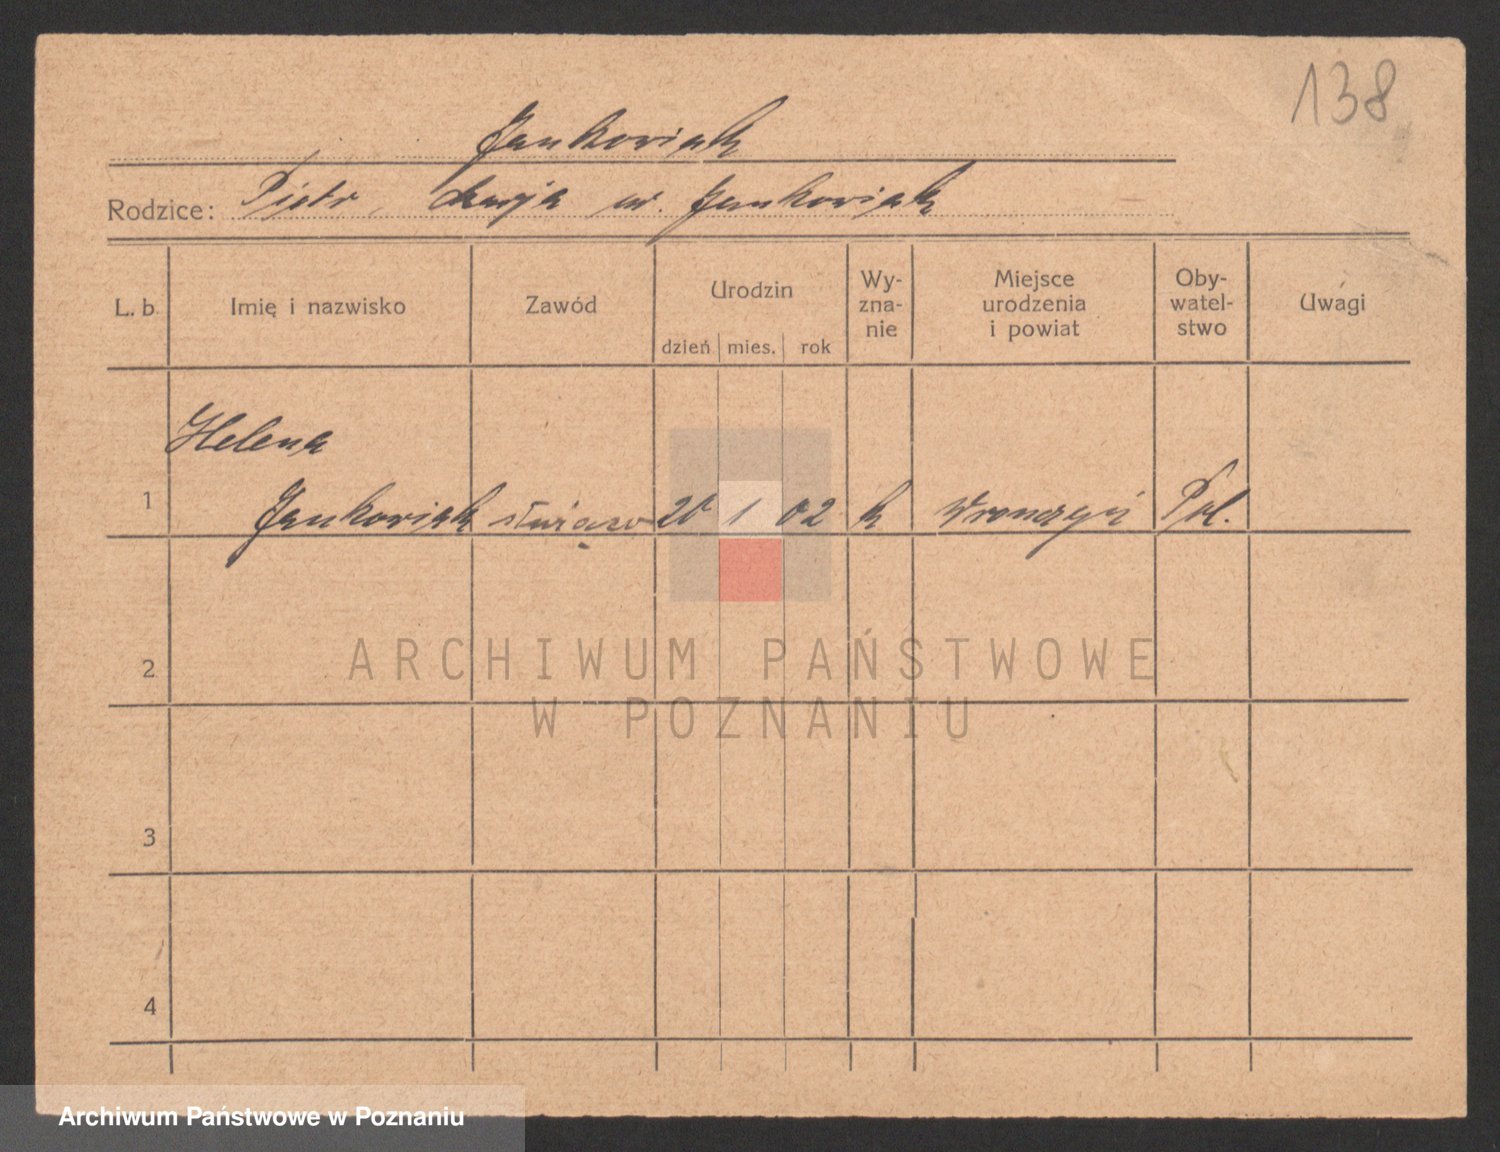 138
Jankowiak
Rodzice: Piotr, w. Jankowiak
L. b. Imię i nazwisko Zawód Urodzin dzień mies. rok Wy-zna-nie Miejsce urodzenia i powiat Oby-watel-stwo Uwagi
Helena
1 Jankowiak 20 1 02 k Wronczyn Pol.
2
ARCHIWUM PAŃSTWOWE
W POZNANIU
3
4
Archiwum Państwowe w Poznaniu